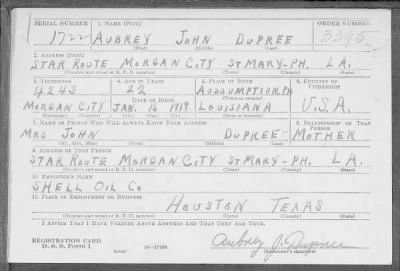 SERIAL NUMBER 1. NAME (Print) ORDER NUMBER
1722 AUBREY JOHN DUPREE 3395
(First) (Middle) (Last)
2. ADDRESS (Print)
STAR ROUTE MORGAN CITY ST MARY-PH. LA.
(Number and street or R. F. D. number) (Town) (County) (State)
3. TELEPHONE 4. AGE IN YEARS 5. PLACE OF BIRTH 6. COUNTRY OF CITIZENSHIP
4243 22 ASSUMPTION, PH
DATE OF BIRTH (Town or county)
MORGAN CITY JAN. 16 1919 LOUISIANA U.S.A.
(Exchange) (Number) (Mo.) (Day) (Yr.) (State or country)
7. NAME OF PERSON WHO WILL ALWAYS KNOW YOUR ADDRESS 8. RELATIONSHIP OF THAT PERSON
MRS JOHN DUPREE- MOTHER
(Mr., Mrs., Miss) (First) (Middle) (Last)
9. ADDRESS OF THAT PERSON
STAR ROUTE MORGAN CITY ST MARY-PH. LA.
(Number and street or R. F. D. number) (Town) (County) (State)
10. EMPLOYER'S NAME
SHELL OIL CO
11. PLACE OF EMPLOYMENT OR BUSINESS
HOUSTON TEXAS
(Number and street or R. F. D. number) (Town) (County) (State)
I AFFIRM THAT I HAVE VERIFIED ABOVE ANSWERS AND THAT THEY ARE TRUE.
REGISTRATION CARD
D. S. S. Form 1 (over) 16-17105 Aubrey J. Dupree
(Registrant's signature)